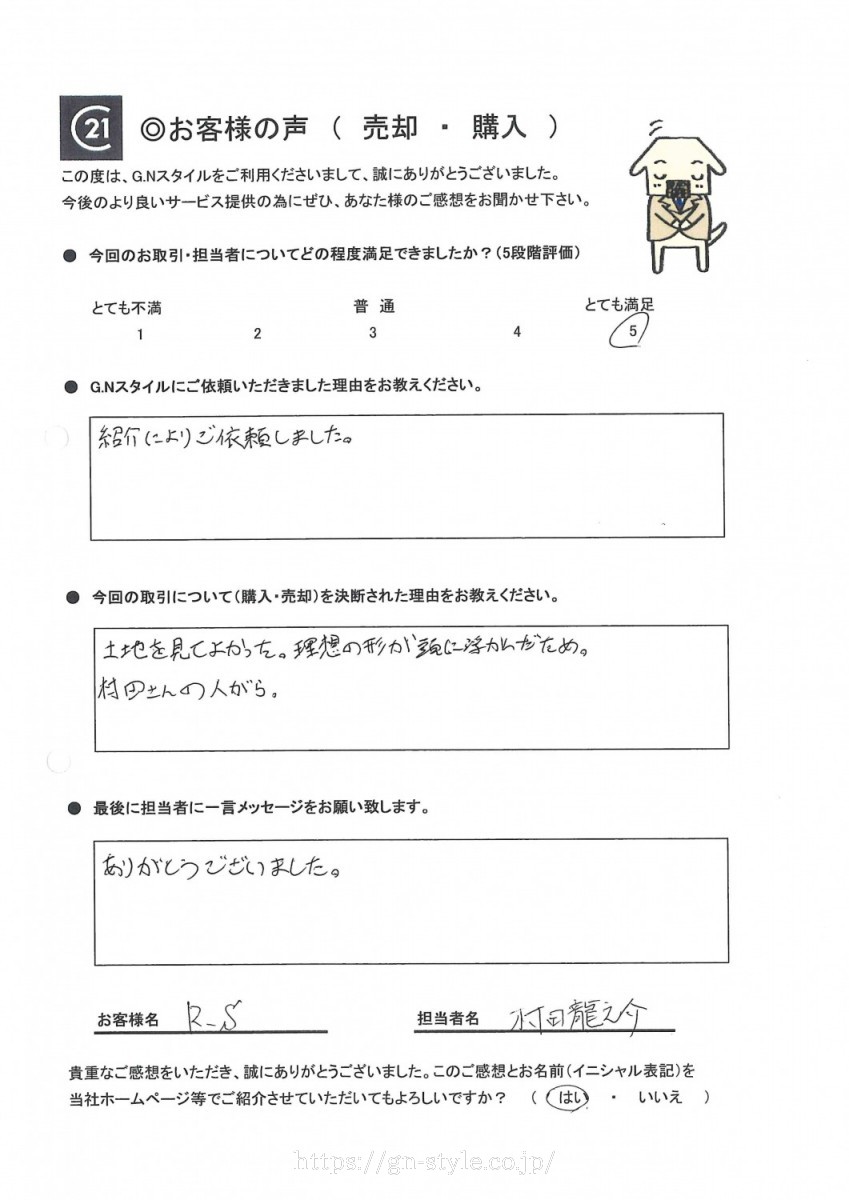 C21 ◎お客様の声 （ 売却 ・ 購入 ）
この度は、G.Nスタイルをご利用くださいまして、誠にありがとうございました。
今後のより良いサービス提供の為にぜひ、あなた様のご感想をお聞かせ下さい。
● 今回のお取引・担当者についてどの程度満足できましたか？（5段階評価）
とても不満 普通 とても満足
1 2 3 4 5
● G.Nスタイルにご依頼いただきました理由をお教えください。
紹介によりご依頼しました。
● 今回の取引について（購入・売却）を決断された理由をお教えください。
土地を見てよかった。理想の形が頭に浮かんだため。
村田さんの人がら。
● 最後に担当者に一言メッセージをお願い致します。
ありがとうございました。
お客様名 R-S 担当者名 村田龍之介
貴重なご感想をいただき、誠にありがとうございました。このご感想とお名前（イニシャル表記）を
当社ホームページ等でご紹介させていただいてもよろしいですか？ （ はい ・ いいえ ）
https://gn-style.co.jp/